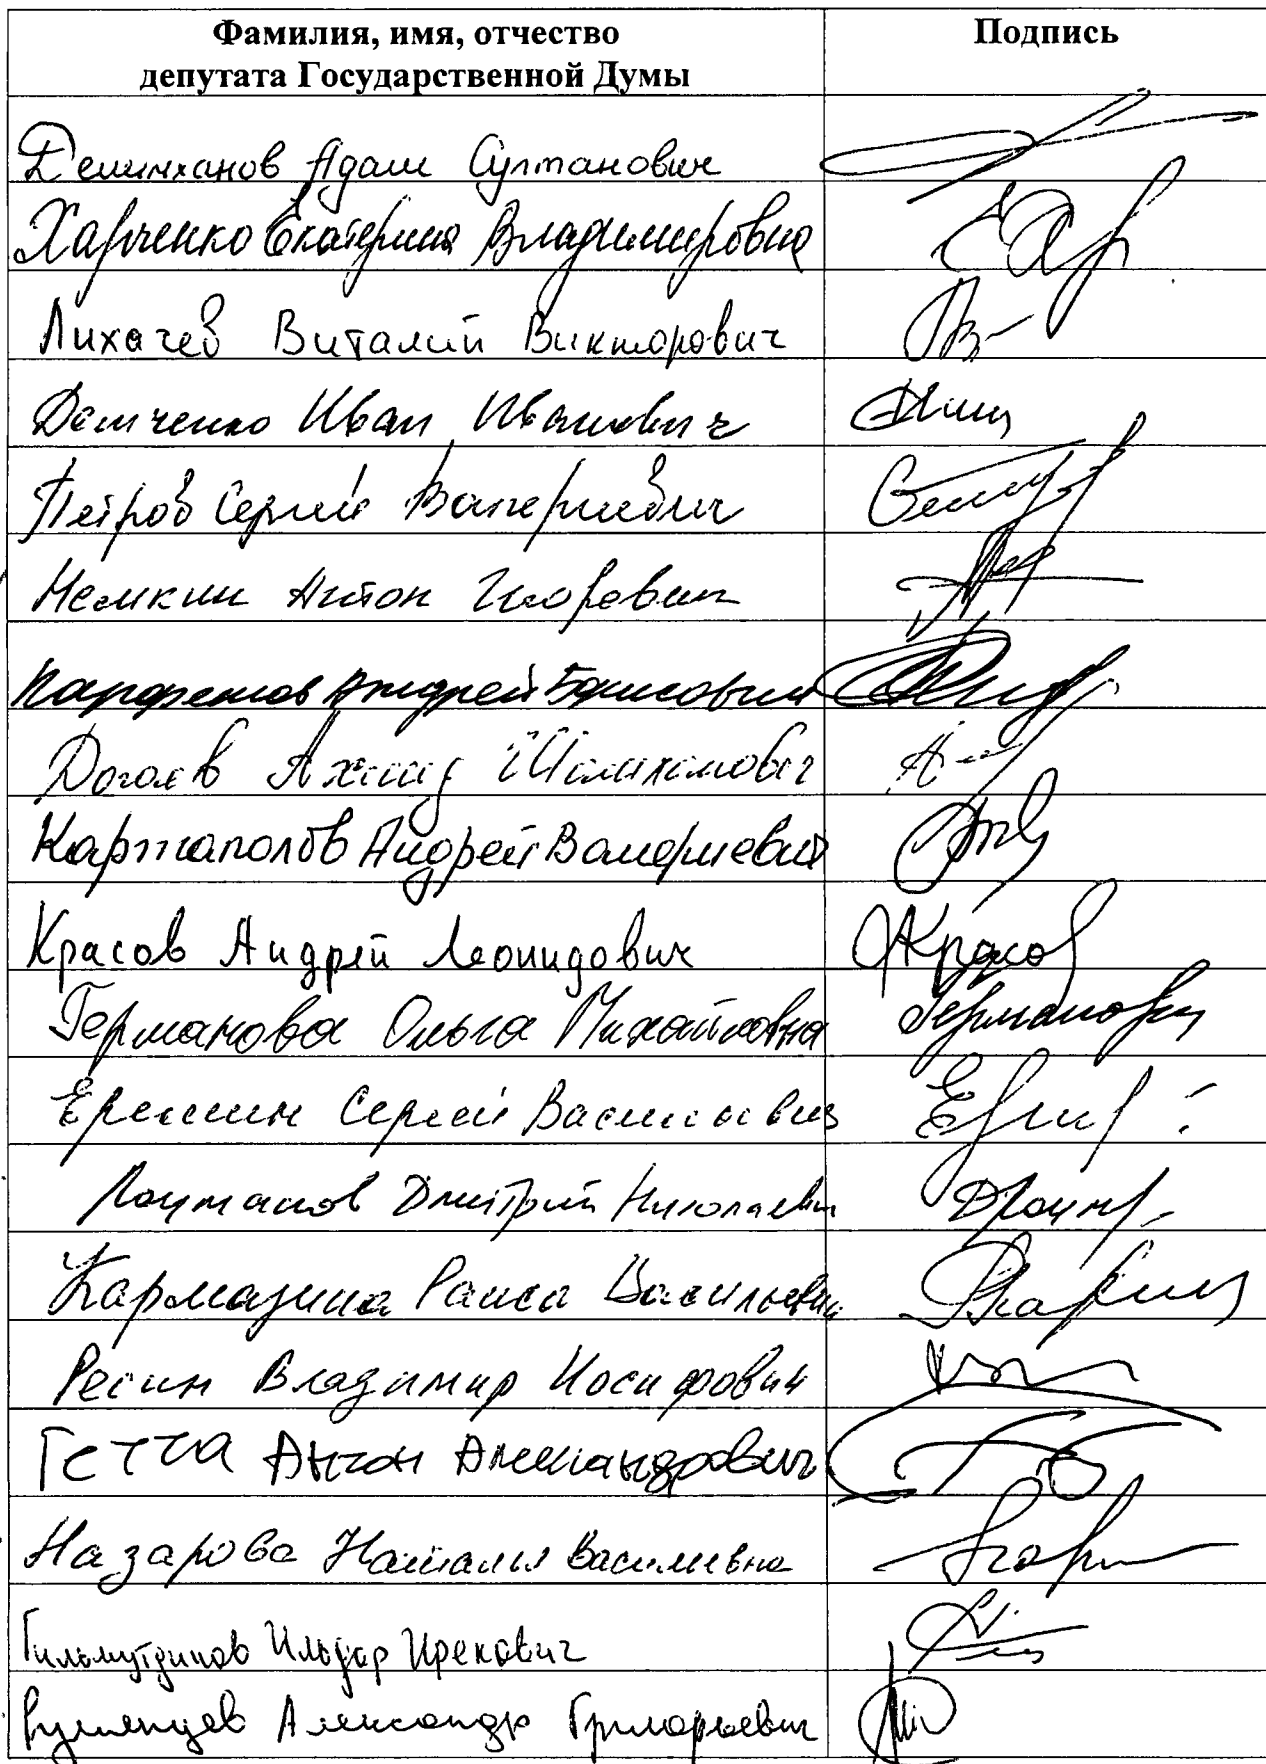 Фамилия, имя, отчество
депутата Государственной Думы
Подпись
Делимханов Адам Султанович
Харченко Екатерина Владимировна
Лихачев Виталий Викторович
Демченко Иван Иванович
Петров Сергей Валериевич
Немкин Антон Игоревич
Парфенов Андрей Борисович
Догаев Ахмед Шамханович
Картаполов Андрей Валериевич
Красов Андрей Леонидович
Красов
Германова Ольга Михайловна
Германова
Еремин Сергей Васильевич
Лоцманов Дмитрий Николаевич
Кармазина Раиса Васильевна
Ресин Владимир Иосифович
Гетта Антон Александрович
Назарова Наталья Васильевна
Гильмутдинов Ильдар Ирекович
Румянцев Александр Григорьевич